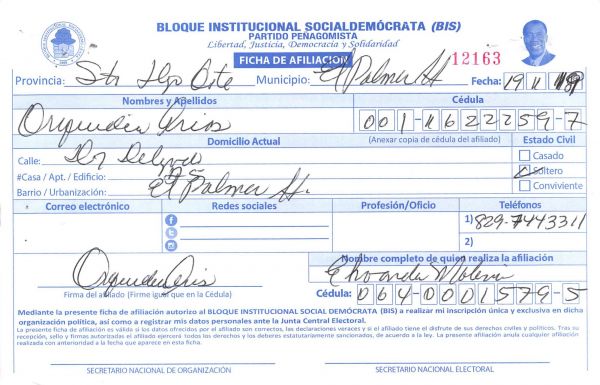 BLOQUE INSTITUCIONAL SOCIALDEMÓCRATA (BIS)
PARTIDO PEÑAGOMISTA
Libertad, Justicia, Democracia y Solidaridad
FICHA DE AFILIACIÓN
12163
Provincia: Sto Dgo Oste Municipio: El Palmar H Fecha: 19
Nombres y Apellidos
Cédula
Orquidea Arias
001-1622259-7
Domicilio Actual
(Anexar copia de cédula del afiliado)
Estado Civil
Calle:
Casado
#Casa / Apt. / Edificio:
Soltero
Barrio / Urbanización: El Palmar H.
Conviviente
Correo electrónico
Redes sociales
Profesión/Oficio
Teléfonos
1) 829-7443311
2)
Orquidea Arias
Firma del afiliado (Firme igual que en la Cédula)
Nombre completo de quien realiza la afiliación
Cédula: 064-0001579-5
Mediante la presente ficha de afiliación autorizo al BLOQUE INSTITUCIONAL SOCIAL DEMÓCRATA (BIS) a realizar mi inscripción única y exclusiva en dicha
organización política, así como a registrar mis datos personales ante la Junta Central Electoral.
La presente ficha de afiliación es válida si los datos ofrecidos por el afiliado son correctos, las declaraciones veraces y si el afiliado tiene el disfrute de sus derechos civiles y políticos. Tras su
recepción, sello y firmas autorizadas el afiliado ejercerá todos los derechos y los deberes estatutariamente sancionados, de acuerdo a la ley. La presente afiliación anula cualquier afiliación
realizada con anterioridad a la fecha que aparece en esta ficha.
SECRETARIO NACIONAL DE ORGANIZACIÓN
SECRETARIO NACIONAL ELECTORAL